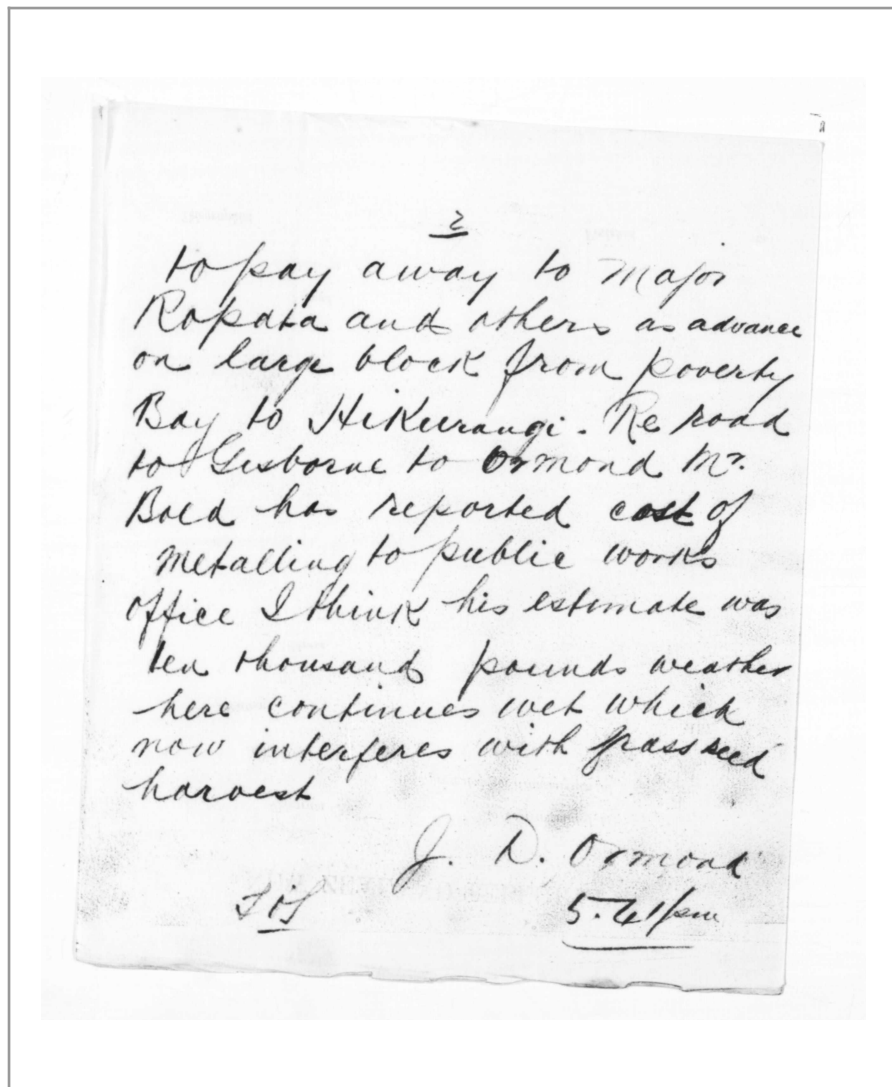 2
to pay away to Major
Ropata and others as advance
on large block from poverty
Bay to Hikurangi. Re road
to Gisborne to Ormond Mr.
Bold has reported cost of
metalling to public works
office I think his estimate was
ten thousand pounds weather
here continues wet which
now interferes with grass seed
harvest
J. D. Ormond
5.41pm